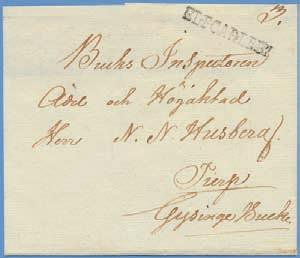 ELFCARLEBY
Bruks Inspectoren
Ädel och Högaktad
Herr N. N. Husberg
Tierp
Gysinge Bruk